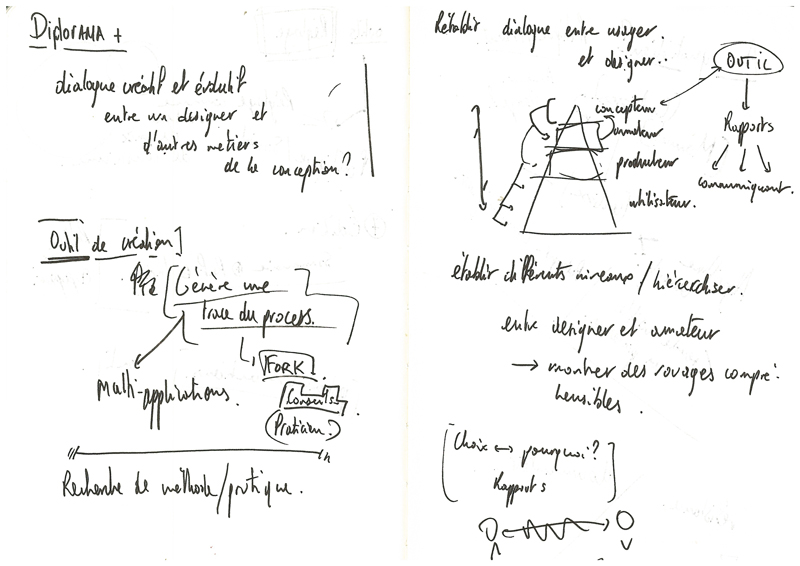 DiplorAMA +
dialogue créatif et évolutif
entre un designer et
d'autres métiers
de la conception?
Outil de création]
Génère une
trace du process.
Multi-applications.
FORK
Praticien?
Recherche de méthode/pratique.
Rétablir dialogue entre usager.
et designer..
OUTIL
concepteur
amateur
producteur
utilisateur.
Rapports
communiquant.
établir différents niveaux / hiérarchiser.
entre designer et amateur
→ montrer des rouages compré-
hensibles.
Choix ↔ pourquoi?
Rapports